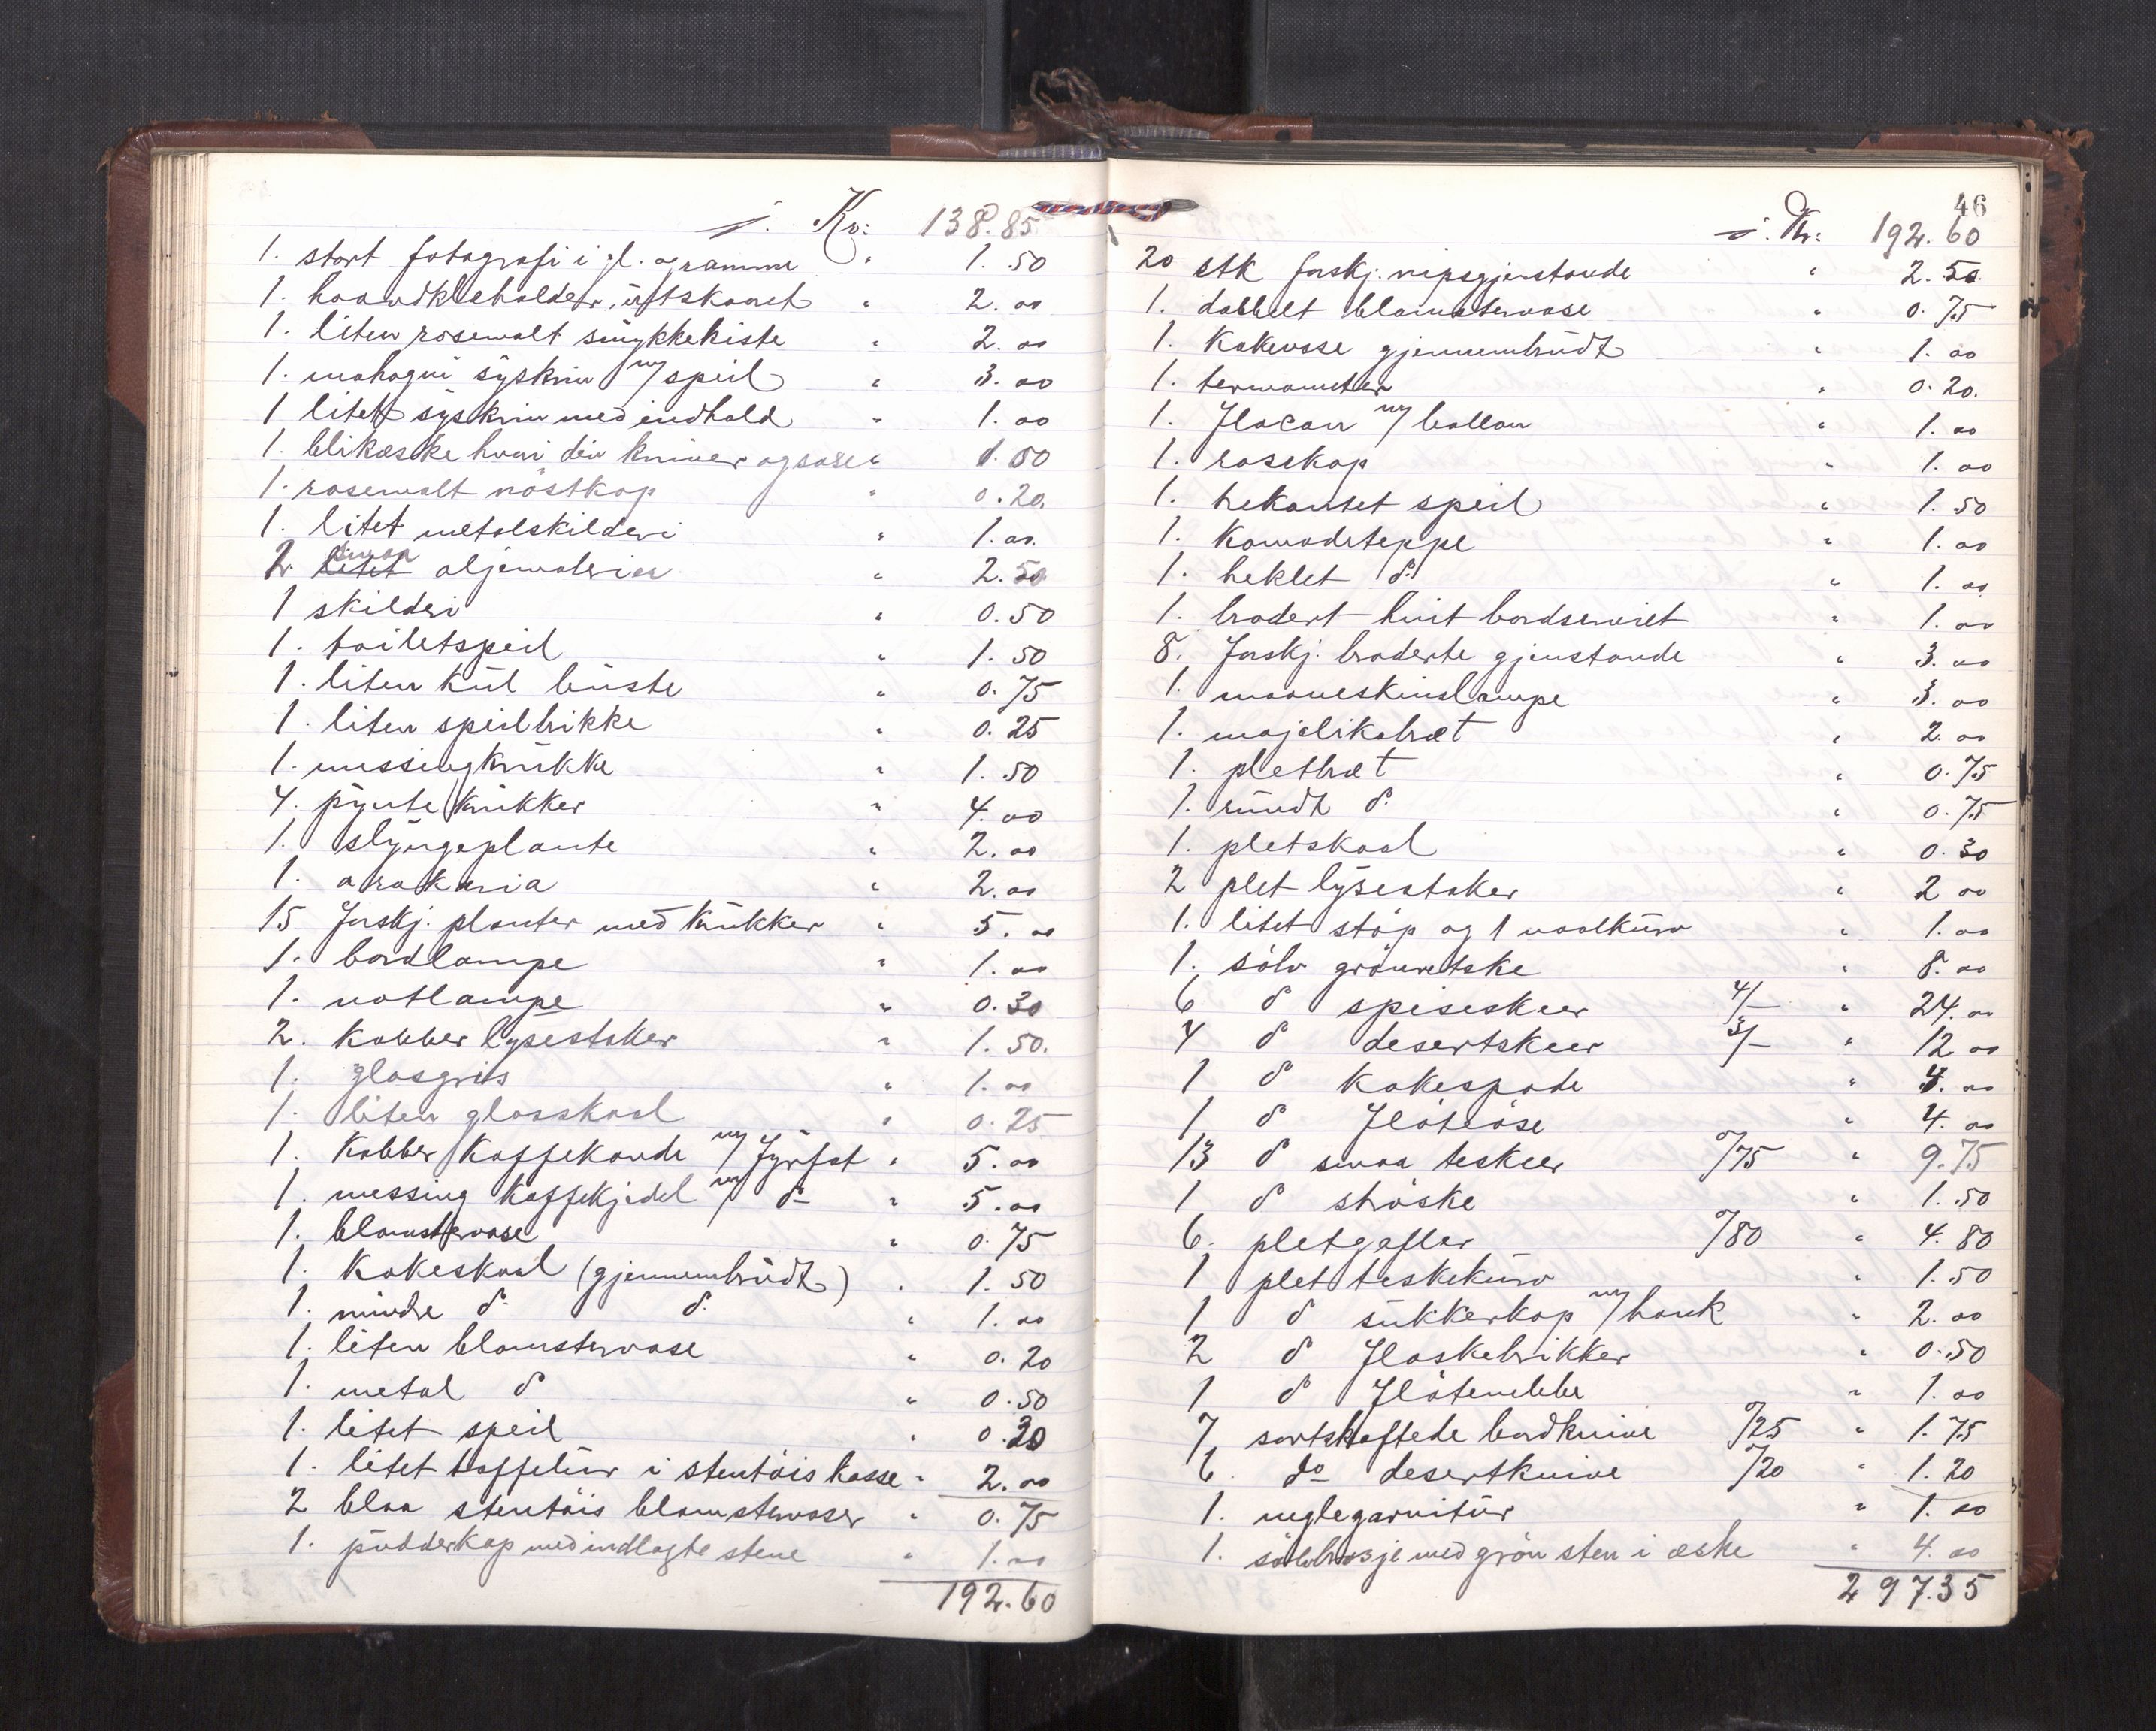 i. Kr: 138.85
1. stort fotografi i gl. og ramme " 1.50
1. haandklæholder, utskaaret " 2.00
1. liten rosemalt smykkekiste " 2.00
1. mahogni syskrin m/ speil " 3.00
1 litet syskrin med indhold " 1.00
1. blikæske hvori div kniver og saxe " 1.50
1. rosemalt nöstkop " 0.20.
1. litet metalskilderi " 1.00.
2. smaa oljemaleri er " 2.50
1 skilderi " 0.50
1. toiletspeil " 1.50
1. liten hül büste " 0.75
1. liten speilbrikke " 0.25
1. messingkrükke " 1.50
4. pynte krükker " 4.00
1. slyngeplante " 2.00
1. arakaria " 2.00
15 forskj. planter med krükker " 5.00
1. bordlampe " 1.00
1. natlampe " 0.30
2. kobber lysestaker " 1.50.
1. glasgris " 1.00
1. liten glasskaal " 0.25
1. kobber kaffekande m/ fyrfat " 5.00
1. messing kaffekjedel m/ do " 5.00
1. blomstervase " 0.75
1. kakeskaal (gjennembrüdt) " 1.50
1. mindre do. do. " 1.00
1. liten blomstervase " 0.20
1. metal do " 0.50
1. litet speil " 0.30
1. litet taffelür i stentöis kasse " 2.00
2 blaa stentöis blomstervaser " 0.75
1. püdderkop med indlagte stene " 1.00
192.60
46
i. Kr: 192.60
20 stk forskj. nipsgjenstande " 2.50
1. dobbelt blomstervase " 0.75
1. kakevase gjennembrüdt " 1.00
1. termometer " 0.20.
1. flacon m/ ballon " 1.00
1. raskop " 1.00
1. hekantet speil " 1.50
1. komodeteppe " 1.00
1. heklet do. " 1.00
1. brodert hvit bordserviet " 1.00
8. forskj. broderte gjenstande " 3.00
1. maaneskinslampe " 3.00
1. majolikabræt " 2.00
1. pletbræt " 0.75
1. ründt do. " 0.75
1. pletskaal " 0.30
2 plet lysestaker " 2 00
1. litet stöp og 1 naalkürv " 1.00
1. sölv grönvetske " 8.00
6 do spiseskeer 4/- " 24.00
4 do desertskeer 3/- " 12 00
1 do kakespade " 4.00
1 do flöteöse " 4.00
13 do smaa teskeer 0/75 " 9.75
1 do ströske " 1.50
6. pletgafler 0/80 " 4.80
1 plet teskekürv " 1.50
1 do sukkerkop m/ hank " 2.00
2 do flaskebrikker " 0.50
1 do flötemebbe " 1.00
7 sortskaftede bordknive 0/25 " 1.75
6. do desertknive 0/20 " 1.20
1. neglegarnitür " 1.00
1. sölvbrosje med grön sten i æske " 4.00
297.35